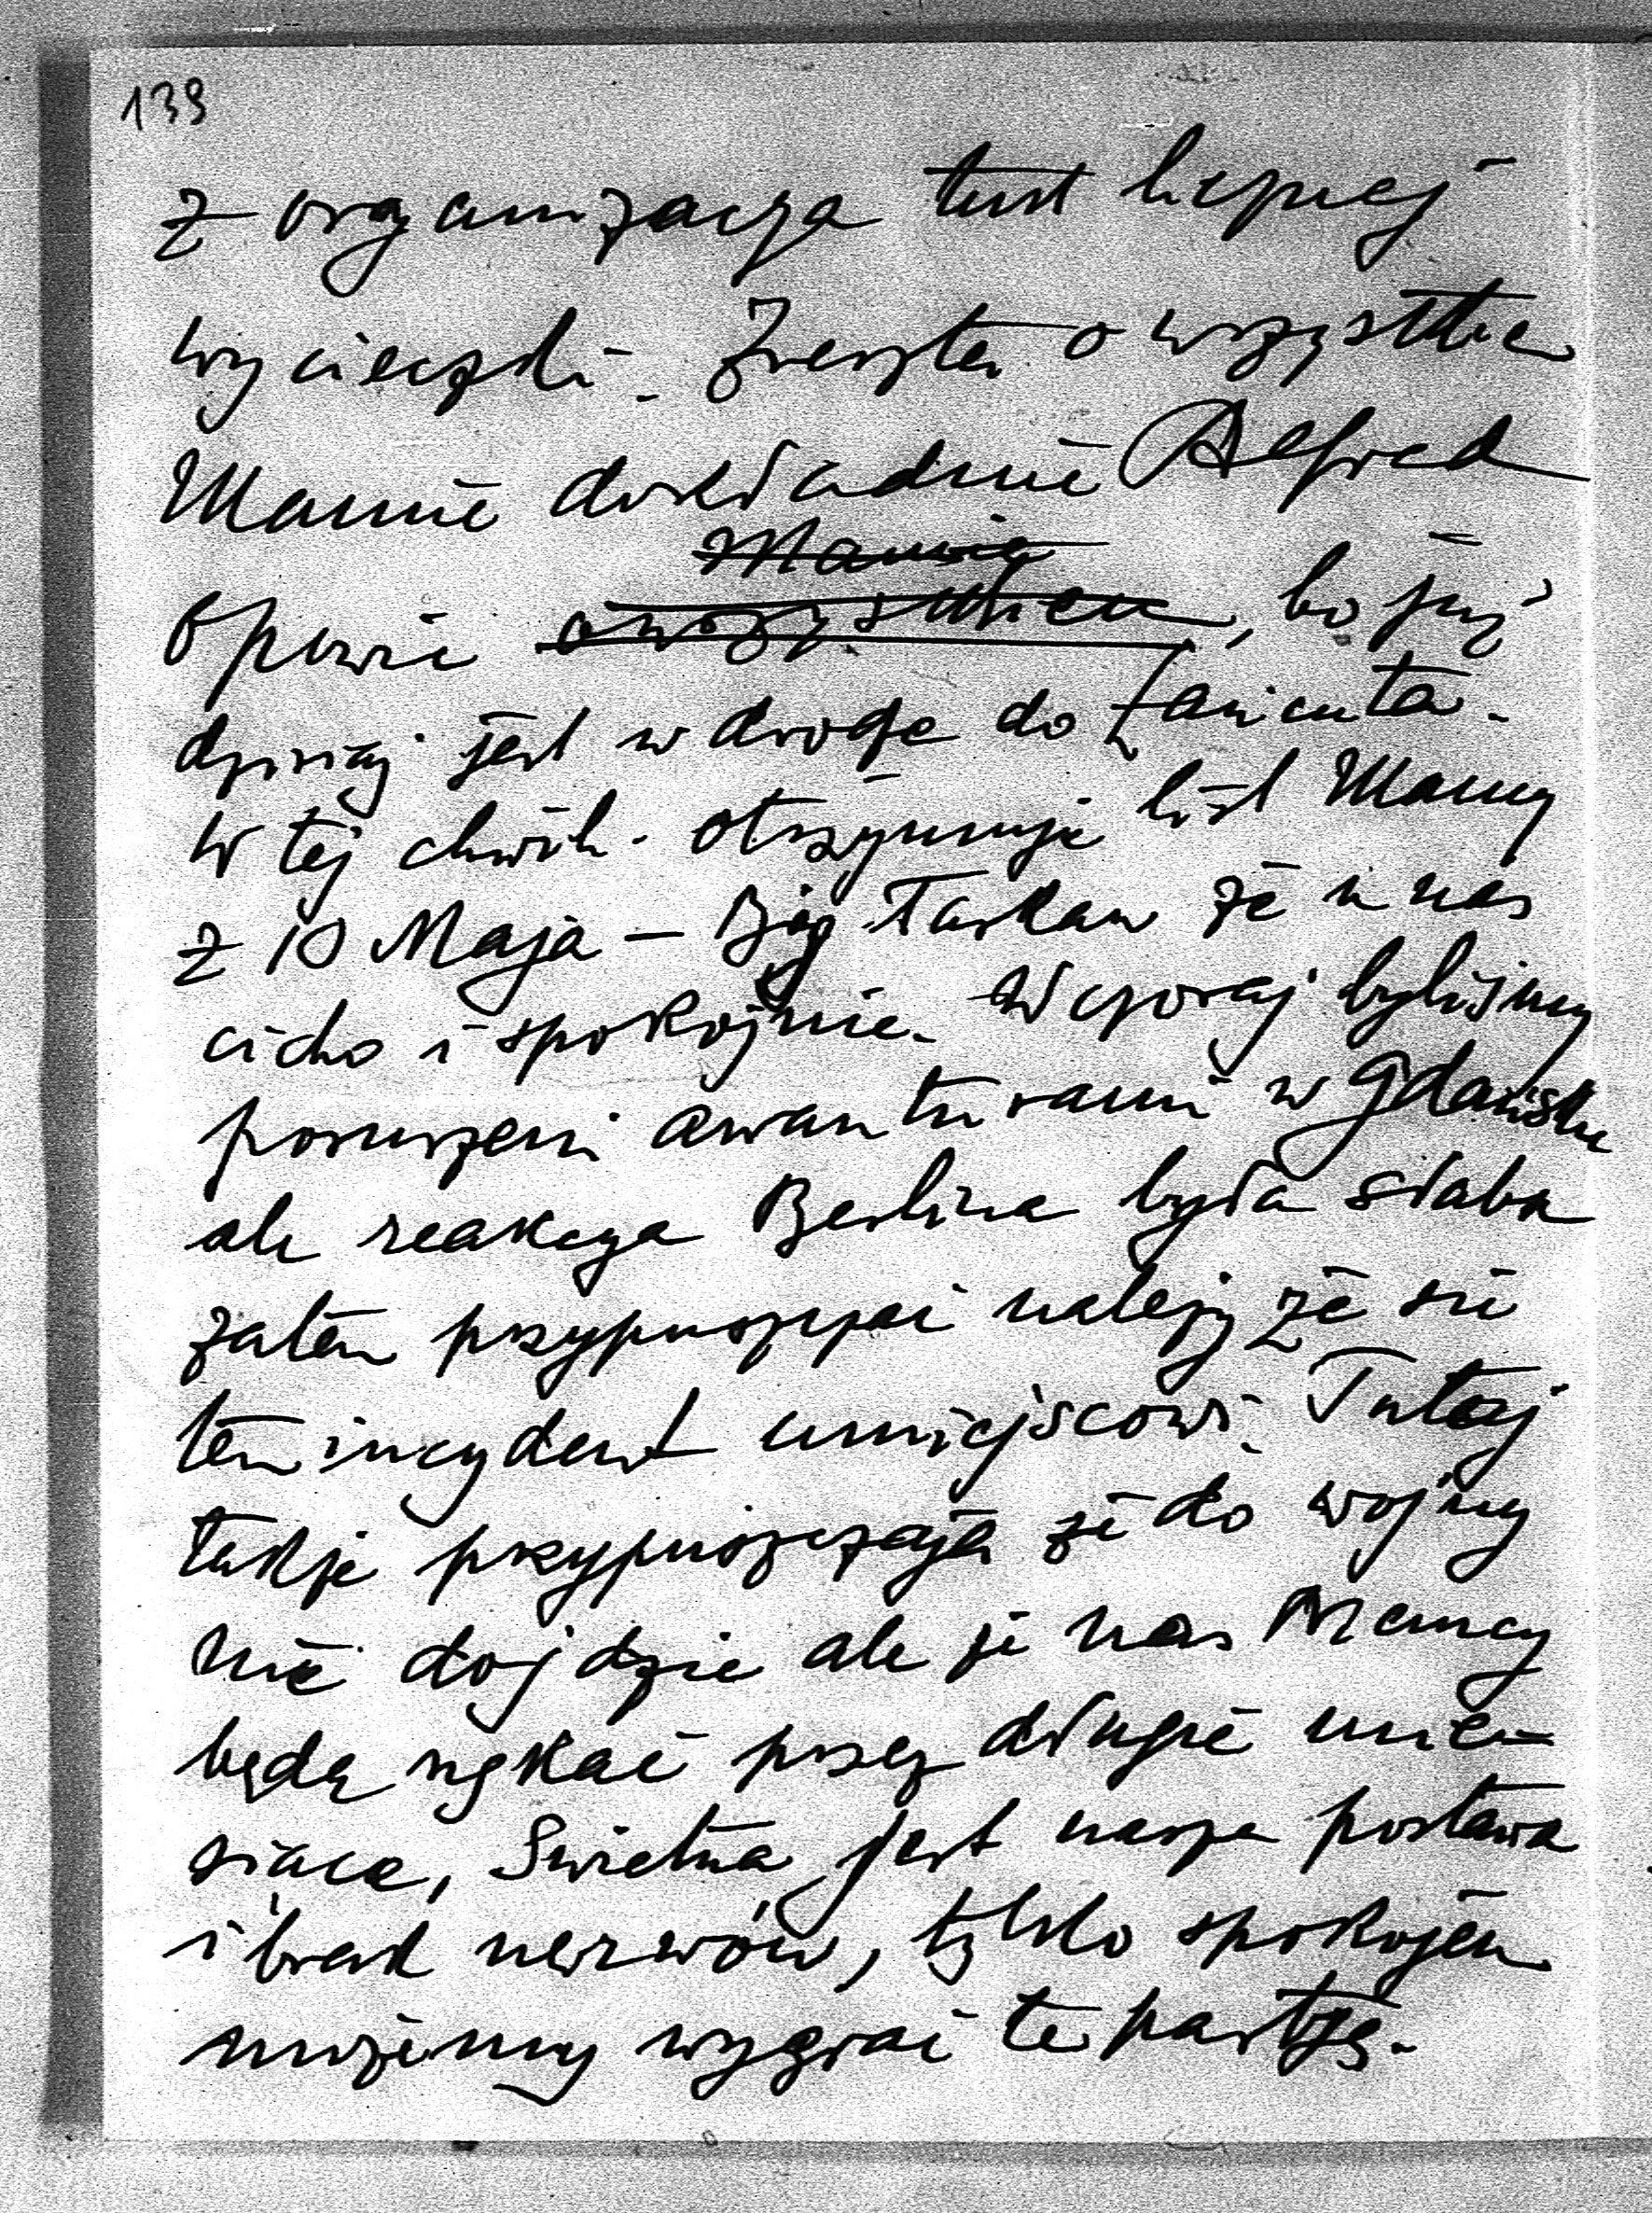 139
z organizacya tust licznej
wycieczki. Zresztą o wszystkiem
Mamie dokładnie Alfred
Mamie
opowie o wszystkiem, bo już
dzisiaj jest w drodze do Łańcuta.
W tej chwili otrzymuję list Mamy
z 10 Maja – Bóg łaskaw że u nas
cicho i spokojnie. Wczoraj byliśmy
poruszeni awanturami w Gdańsku
ale reakcya Berlina była słaba
zatem przypuszczać należy że się
ten incydent umiejscowi. Tutaj
także przypuszczają że do wojny
nie dojdzie ale że nas Niemcy
będą nękać przez długie mie-
siące, Świetna jest nasza postawa
i brak nerwów, tylko spokojem
możemy wygrać tę partyę.